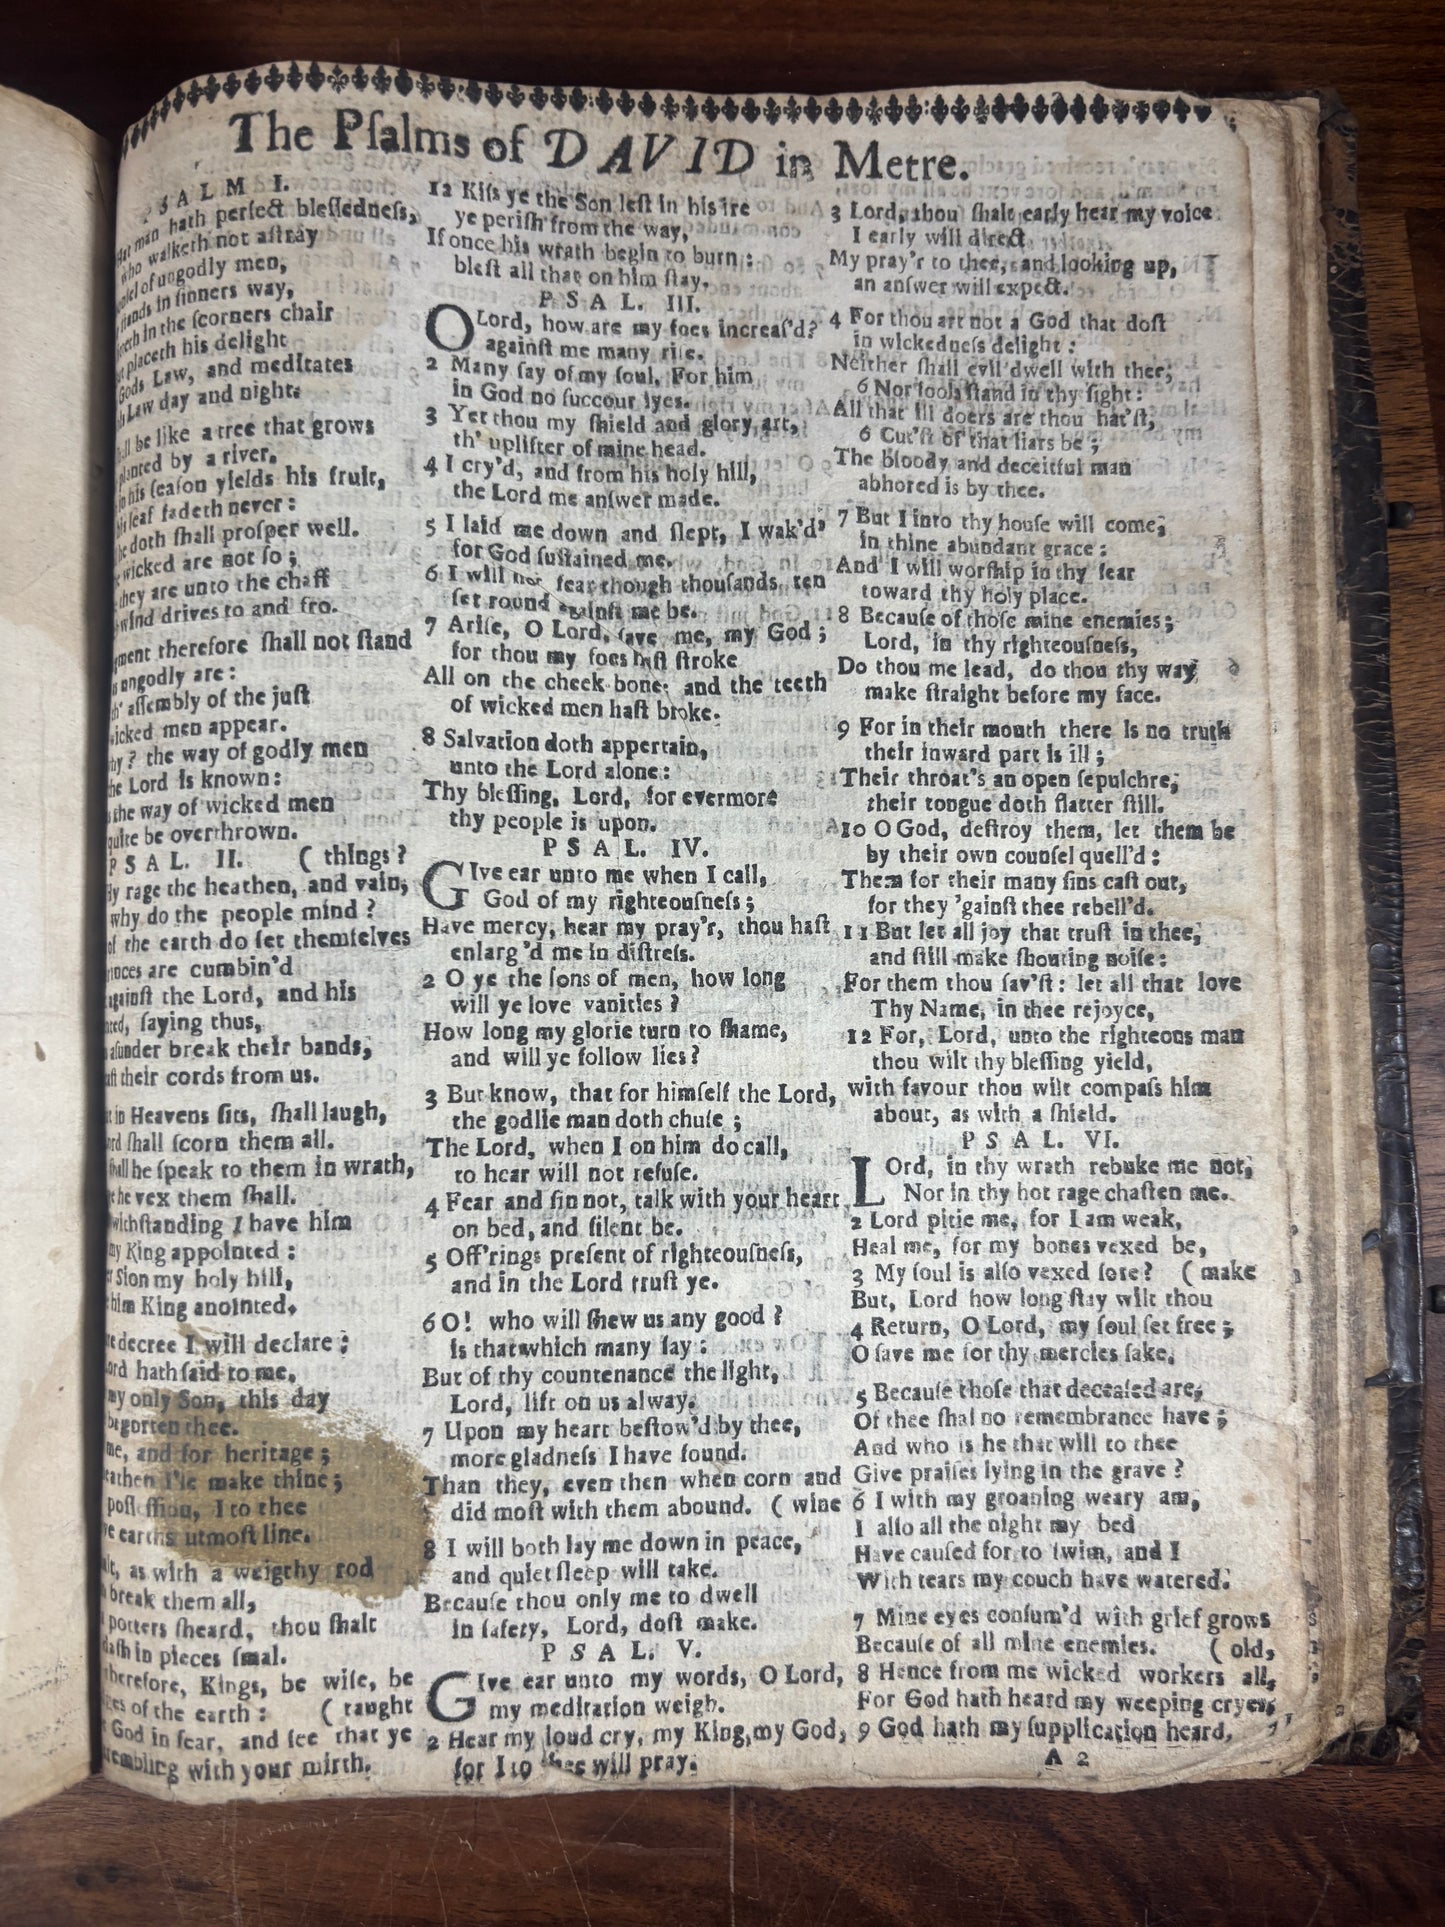 The Pſalms of DAVID in Metre.
PSALM I.
man hath perfect bleſſedneſs,
who walketh not aſtray
of ungodly men,
ſtands in ſinners way,
in the ſcorners chair
placeth his delight
Gods Law, and meditates
Law day and night.
be like a tree that grows
planted by a river,
in his ſeaſon yields his fruit,
his leaf fadeth never:
he doth ſhall proſper well.
wicked are not ſo;
they are unto the chaff
wind drives to and fro.
therefore ſhall not ſtand
ungodly are:
th' aſſembly of the juſt
wicked men appear.
why? the way of godly men
the Lord is known:
the way of wicked men
quite be overthrown.
PSAL. II. ( things?
rage the heathen, and vain,
why do the people mind?
of the earth do ſet themſelves
are cumbin'd
againſt the Lord, and his
ſaying thus,
aſunder break their bands,
their cords from us.
in Heavens ſits, ſhall laugh,
ſhall ſcorn them all.
ſhall he ſpeak to them in wrath,
he vex them ſhall.
I have him
my King appointed:
Sion my holy hill,
him King anointed.
decree I will declare;
hath ſaid to me,
my only Son, this day
begotten thee.
me, and for heritage;
I'le make thine;
I to thee
earths utmoſt line.
as with a weigthy rod
break them all,
potters ſheard, thou ſhalt
daſh in pieces ſmal.
therefore, Kings, be wiſe, be
of the earth: ( taught
God in fear, and ſee that ye
with your mirth.
12 Kiſs ye the Son leſt in his ire
ye periſh from the way,
If once his wrath begin to burn:
bleſt all that on him ſtay.
PSAL. III.
O Lord, how are my foes increaſ'd?
againſt me many riſe.
2 Many ſay of my ſoul, For him
in God no ſuccour lyes.
3 Yet thou my ſhield and glory art,
th' uplifter of mine head.
4 I cry'd, and from his holy hill,
the Lord me anſwer made.
5 I laid me down and ſlept, I wak'd'
for God ſuſtained me.
6 I will not fear though thouſands ten
ſet round againſt me be.
7 Ariſe, O Lord, ſave me, my God;
for thou my foes haſt ſtroke
All on the cheek bone: and the teeth
of wicked men haſt broke.
8 Salvation doth appertain,
unto the Lord alone:
Thy bleſſing, Lord, for evermore
thy people is upon.
PSAL. IV.
GIve ear unto me when I call,
God of my righteouſneſs;
Have mercy, hear my pray'r, thou haſt
enlarg'd me in diſtreſs.
2 O ye the ſons of men, how long
will ye love vanities?
How long my glorie turn to ſhame,
and will ye follow lies?
3 But know, that for himſelf the Lord,
the godlie man doth chuſe;
The Lord, when I on him do call,
to hear will not refuſe.
4 Fear and ſin not, talk with your heart
on bed, and ſilent be.
5 Off'rings preſent of righteouſneſs,
and in the Lord truſt ye.
6 O! who will ſhew us any good?
is that which many ſay:
But of thy countenance the light,
Lord, lift on us alway.
7 Upon my heart beſtow'd by thee,
more gladneſs I have found.
Than they, even then when corn and
did moſt with them abound. ( wine
8 I will both lay me down in peace,
and quiet ſleep will take.
Becauſe thou only me to dwell
in ſafety, Lord, doſt make.
PSAL. V.
GIve ear unto my words, O Lord,
my meditation weigh.
2 Hear my loud cry, my King, my God,
for I to thee will pray.
3 Lord, thou ſhalt early hear my voice
I early will direct
My pray'r to thee, and looking up,
an anſwer will expect.
4 For thou art not a God that doſt
in wickedneſs delight:
Neither ſhall evil dwell with thee;
6 Nor fools ſtand in thy ſight:
All that ill doers are thou hat'ſt,
6 Cut'ſt of that liars be;
The bloody and deceitful man
abhored is by thee.
7 But I into thy houſe will come;
in thine abundant grace:
And I will worſhip in thy fear
toward thy holy place.
8 Becauſe of thoſe mine enemies;
Lord, in thy righteouſneſs,
Do thou me lead, do thou thy way
make ſtraight before my face.
9 For in their mouth there is no truth
their inward part is ill;
Their throat's an open ſepulchre;
their tongue doth flatter ſtill.
10 O God, deſtroy them, let them be
by their own counſel quell'd:
Them for their many ſins caſt out,
for they 'gainſt thee rebell'd.
11 But let all joy that truſt in thee,
and ſtill make ſhouting noiſe:
For them thou ſav'ſt: let all that love
Thy Name, in thee rejoyce,
12 For, Lord, unto the righteous man
thou wilt thy bleſſing yield,
with favour thou wilt compaſs him
about, as with a ſhield.
PSAL. VI.
LOrd, in thy wrath rebuke me not;
Nor in thy hot rage chaſten me.
2 Lord pitie me, for I am weak,
Heal me, for my bones vexed be,
3 My ſoul is alſo vexed ſore? ( make
But, Lord how long ſtay wilt thou
4 Return, O Lord, my ſoul ſet free;
O ſave me for thy mercies ſake,
5 Becauſe thoſe that deceaſed are;
Of thee ſhal no remembrance have;
And who is he that will to thee
Give praiſes lying in the grave?
6 I with my groaning weary am,
I alſo all the night my bed
Have cauſed for to ſwim, and I
With tears my couch have watered.
7 Mine eyes conſum'd with grief grows
Becauſe of all mine enemies. ( old,
8 Hence from me wicked workers all,
For God hath heard my weeping cryes,
9 God hath my ſupplication heard,
A 2